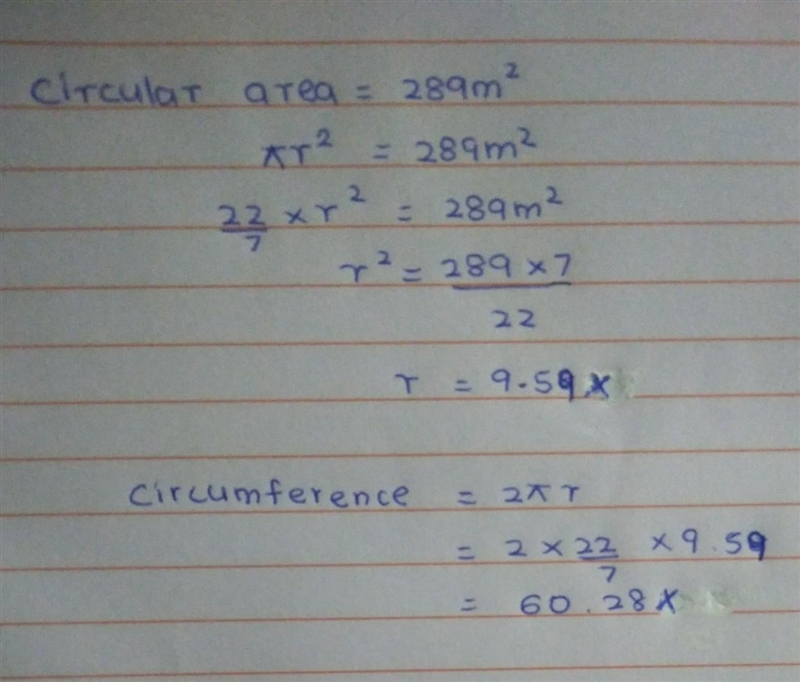 Circular area = 289m²
πr² = 289m²
22/7 × r² = 289m²
r² = 289 × 7 / 22
r = 9.59 x
Circumference = 2πr
= 2 × 22/7 × 9.59
= 60.28 x